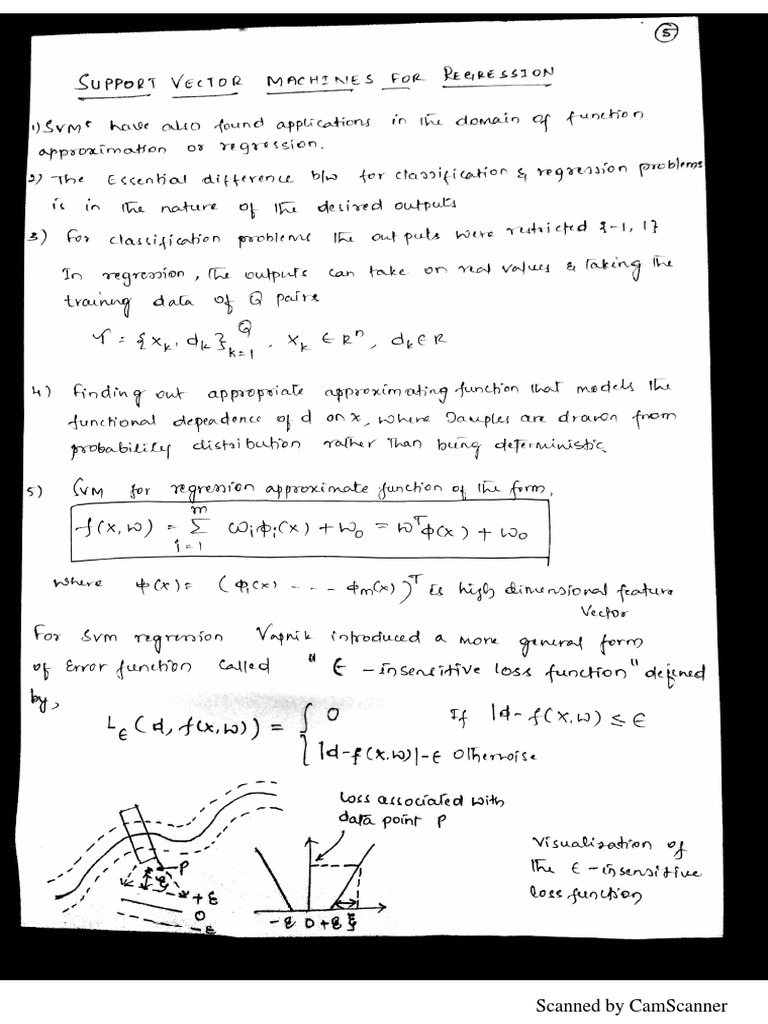 5
SUPPORT VECTOR MACHINES FOR REGRESSION
1) SVMs have also found applications in the domain of function
approximation or regression.
2) The Essential difference b/w for classification & regression problems
is in the nature of the desired outputs
3) For classification problems the outputs were restricted {-1, 1}
In regression, the outputs can take on real values & taking the
training data of Q pairs
τ = {x_k, d_k}_{k=1}^Q . x_k ∈ R^n, d_k ∈ R
4) Finding out appropriate approximating function that models the
functional dependence of d on x, where Samples are drawn from
probability distribution rather than being deterministic.
5) SVM for regression approximate function of the form,
f(x,w) = Σ_{i=1}^m ω_i φ_i(x) + w_0 = w^T φ(x) + w_0
where φ(x) = (φ_i(x) - - - - φ_m(x))^T is high dimensional feature
vector
For SVM regression Vapnik introduced a more general form
of Error function called " ∈ - insensitive loss function" defined
by,
L_∈ (d, f(x,w)) = { 0 If |d - f(x,w) ≤ ∈
|d - f(x,w)| - ∈ Otherwise
Loss associated with
data point P
Visualization of
the ∈ - insensitive
loss function
P
ξ
+ε
0
-ε
-ε 0 +ε ξ
Scanned by CamScanner